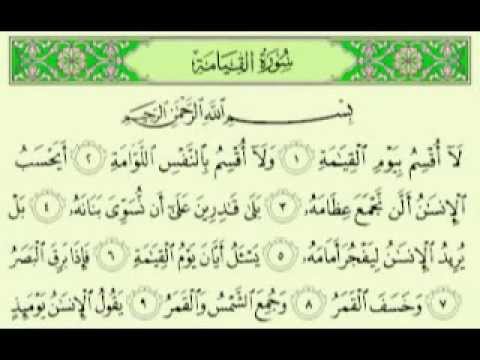 سُورَةُ الْقِيَامَةِ
بِسْمِ اللَّهِ الرَّحْمَٰنِ الرَّحِيمِ
لَا أُقْسِمُ بِيَوْمِ الْقِيَامَةِ ١ وَلَا أُقْسِمُ بِالنَّفْسِ اللَّوَّامَةِ ٢ أَيَحْسَبُ
الْإِنسَانُ أَلَّن نَّجْمَعَ عِظَامَهُ ٣ بَلَىٰ قَادِرِينَ عَلَىٰ أَن نُّسَوِّيَ بَنَانَهُ ٤ بَلْ
يُرِيدُ الْإِنسَانُ لِيَفْجُرَ أَمَامَهُ ٥ يَسْأَلُ أَيَّانَ يَوْمُ الْقِيَامَةِ ٦ فَإِذَا بَرِقَ الْبَصَرُ
٧ وَخَسَفَ الْقَمَرُ ٨ وَجُمِعَ الشَّمْسُ وَالْقَمَرُ ٩ يَقُولُ الْإِنسَانُ يَوْمَئِذٍ